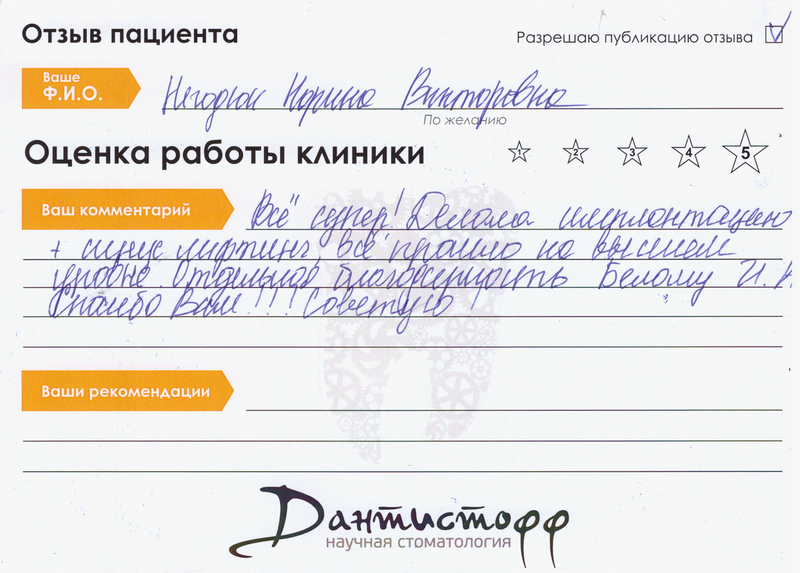 Отзыв пациента
Разрешаю публикацию отзыва
Ваше
Ф.И.О.
Викторовна
По желанию
Оценка работы клиники
1 2 3 4 5
Ваш комментарий
Всё супер! Делала имплантацию
+ синус лифтинг, всё прошло на высшем
уровне. Отдельная благодарность Белому И.
Спасибо Вам!!! Советую!
Ваши рекомендации
Дантистофф
научная стоматология